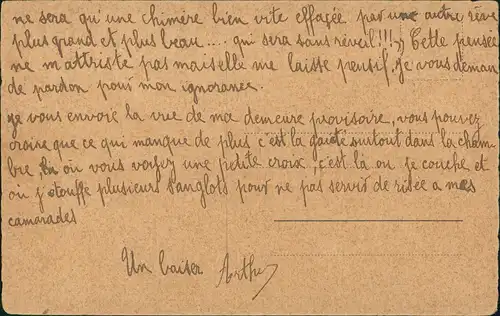 ne sera qu'une chimère bien vite effaçée par une autre rêve
plus grand et plus beau.... qui sera sans réveil!!!») Cette pensée
ne m'attriste pas mais elle me laisse pensif, je vous deman
de pardon pour mon ignorance.
je vous envoie la vue de ma demeure provisoire, vous pouvez
croire que ce qui manque de plus c'est la gaieté surtout dans la cham-
bre, là où vous voyez une petite croix, c'est là ou je couche et
où j'étouffe plusieurs sanglots pour ne pas servir de risée a mes
camarades
Un baiser Arthur